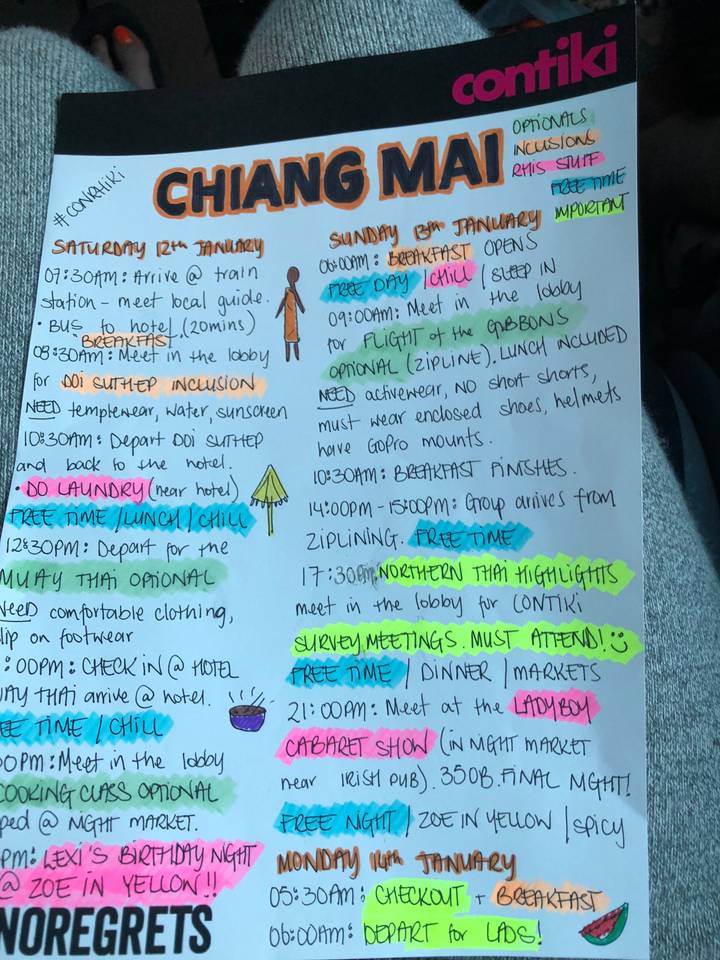 contiki
CHIANG MAI
#CONRHIKI
OPTIONALS
INCLUSIONS
RHIS STUFF
FREE TIME
IMPORTANT
SATURDAY 12th JANUARY
07:30AM: Arrive @ train
station - meet local guide.
• BUS to hotel (20mins)
• BREAKFAST
08:30AM: Meet in the lobby
for DOI SUTHEP INCLUSION
NEED templewear, water, sunscreen
10:30AM: Depart DOI SUTHEP
and back to the hotel.
• DO LAUNDRY (near hotel)
FREE TIME / LUNCH / CHILL
12:30PM: Depart for the
MUAY THAI OPTIONAL
NEED comfortable clothing,
lip on footwear
:00PM: CHECK IN @ HOTEL
UAY THAI arrive @ hotel.
EE TIME / CHILL
0PM: Meet in the lobby
COOKING CLASS OPTIONAL
ped @ NIGHT MARKET.
PM: LEXI'S BIRTHDAY NIGHT
@ ZOE IN YELLOW!!
NOREGRETS
SUNDAY 13th JANUARY
06:00AM: BREAKFAST OPENS
FREE DAY / CHILL / SLEEP IN
09:00AM: Meet in the lobby
for FLIGHT of the GIBBONS
OPTIONAL (ZIPLINE). LUNCH INCLUDED
NEED activewear, NO short shorts,
must wear enclosed shoes, helmets
have GoPro mounts.
10:30AM: BREAKFAST FINISHES.
14:00PM - 15:00PM: Group arrives from
ZIPLINING. FREE TIME
17:30PM: NORTHERN THAI HIGHLIGHTS
meet in the lobby for CONTIKI
SURVEY MEETINGS. MUST ATTEND! :)
FREE TIME / DINNER / MARKETS
21:00PM: Meet at the LADYBOY
CABARET SHOW (IN NIGHT MARKET
near IRISH PUB). 350B. FINAL NIGHT!
FREE NIGHT / ZOE IN YELLOW / SPICY
MONDAY 14th JANUARY
05:30AM: CHECKOUT + BREAKFAST
06:00AM: DEPART for LAOS!